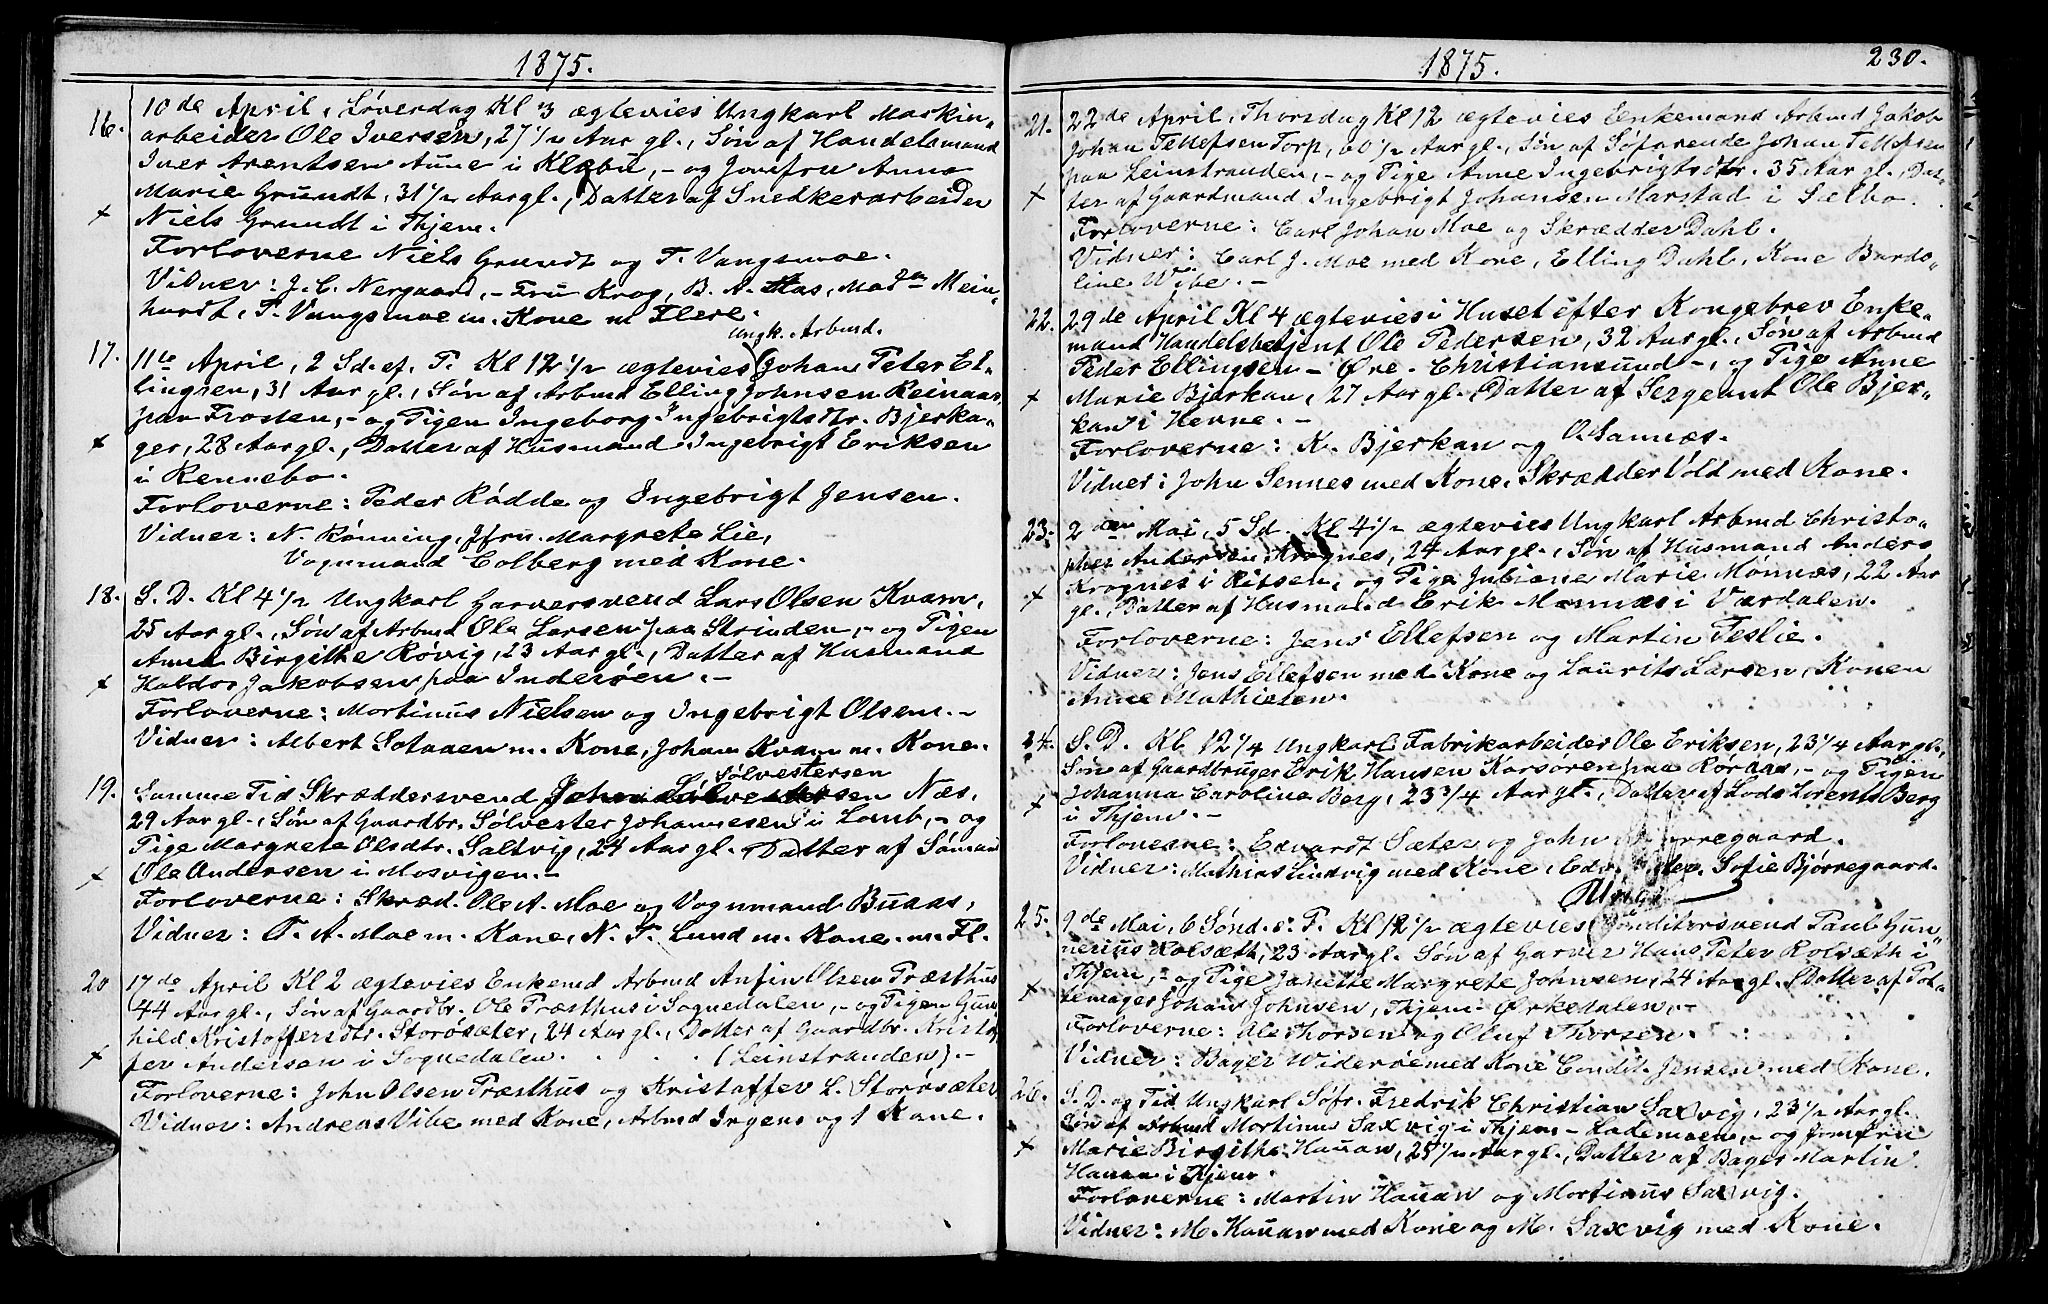 1875.
16. 10de April, Løverdag Kl 3 ægtevies Ungkarl Maskin„
arbeider Ole Iversen, 27 1/2 Aar gl., Søn af Handelsmand
Iver Arentsen Aune i Klæbu, - og Jomfru Anna
Marie Grundt, 31 1/2 Aar gl., Datter af Snedkerarbeider
Niels Grundt i Thjem.
Forloverne Niels Grundt og T. Vangsmoe.
Vidner: J. C. Nergaard, - Fru Krog, B. A. Aas, Madm Mein„
hardt, T. Vangsmoe m. Kone m Flere.
Ungk. Arbmd.
17. 11te April, 2 Sd. ef. P. Kl 12 1/2 ægtevies Johan Peter El„
lingsen, 31 Aar gl., Søn af Arbmd Elling Johnsen Reinaas,
paa Frosten, - og Pigen Ingeborg Ingebrigtsdtr. Bjerka„
ger, 28 Aar gl., Datter af Husmand Ingebrigt Eriksen
i Rennebo.
Forloverne: Peder Rødde og Ingebrigt Jensen.
Vidner: N. Rønning, Jfru. Margrete Lie,
Vognmand Colberg med Kone.
18. S. D. Kl 4 1/2 Ungkarl Garversvend Lars Olsen Kvam,
25 Aar gl., Søn af Arbmd Ole Larsen paa Strinden, - og Pigen
Anna Birgithe Røvig, 23 Aar gl., Datter af Husmand
Haldor Jakobsen paa Inderøen. -
Forloverne: Mortinus Nielsen og Ingebrigt Olsen. -
Vidner: Albert Solaaen m. Kone, Johan Kvam m. Kone.
Sølvestersen
19. Samme Tid Skræddersvend Johan Sølvestersen Næs,
29 Aar gl., Søn af Gaardbr. Sølvester Johannesen i Lomb, - og
Pige Margrete Olsdtr. Saltvig, 24 Aar gl. Datter af Sømand
Ole Andersen i Mosvigen. -
Forloverne: Skræd. Ole A. Moe og Vognmand Buaas,
Vidner: O. A. Moe m. Kone, N. P. Lund m. Kone. m. Fl.
20 17de April Kl 2 ægtevies Enkemd Arbmd Anfin Olsen Præsthus
44 Aar gl., Søn af Gaardbr. Ole Præsthus i Sognedalen, - og Pigen Gun„
hild Kristoffersdtr. Storøsæter, 24 Aar gl., Datter af Gaardbr. Kristof
fer Andersen i Sognedalen. (Leinstranden). -
Forloverne: John Olsen Præsthus og Kristoffer L. Storøsæter
Vidner: Andreas Vibe med Kone, Arbmd Irgens og 1 Kone.
1875. 230.
21. 22de April, Thorsdag Kl 12 ægtevies Enkemand Arbmd Jakob
Johan Tellefsen Torp, 60 1/2 Aar gl., Søn af Søfarende Johan Tellefsen
paa Leinstranden, - og Pige Anne Ingebrigtsdtr. 35 Aar gl., Dat„
ter af Gaardmand Ingebrigt Johansen Marstad i Sælbo.
Forloverne: Carl Johan Moe og Skrædder Dahl.
Vidner: Carl J. Moe med Kone, Elling Dahl, Kone Bardo„
line Wibe. -
22. 29de April Kl 4 ægtevies i Huset efter Kongebrev Enke„
mand Handelsbetjent Ole Pedersen, 32 Aar gl., Søn af Arbmd
Peder Ellingsen - Øre - Christiansund -, og Pige Anne
Marie Bjerkan, 27 Aar gl. Datter af Sergeant Ole Bjer„
kan i Hevne. -
Forloverne: K. Bjerkan og O. Sannæs.
Vidner: John Sennes med Kone. Skrædder Vold med Kone.
23. 2den Mai, 5 Sd. Kl 4 1/2 ægtevies Ungkarl Arbmd Christo„
pher Andersen Krognes, 24 Aar gl., Søn af Husmand Anders
Krognes i Ritsen, og Pige Juliane Marie Monnæs, 22 Aar
gl. Datter af Husmand Erik Monnæs i Værdalen.
Forloverne: Jens Ellefsen og Martin Feslie.
Vidner: Jens Ellefsen med Kone og Laurits Larsen, Konen
Anne Mathiesen.
24. S. D. Kl 12 1/4 Ungkarl Fabrikarbeider Ole Eriksen, 23 1/4 Aar gl,
Søn af Gaardbruger Erik Hansen Korsøren paa Røraas, - og Pigen
Johanna Carolina Berg, 23 3/4 Aar gl., Datter af Lods Lorents Berg
i Thjem. -
Forloverne: Edvardt Sæter og John Bjørregaard.
Vidner: Mathias Lindvig med Kone, Edv. Sæter. Sofie Bjørregaard.
25. 9de Mai, 6 Sønd. e. P. Kl 12 1/2 ægtevies Conditorsvend Paul Gun„
nerius Rolsæth, 23 Aar gl. Søn af Garver Hans Peter Rolsæth i
Thjem, - og Pige Janette Margrete Johnsen, 24 Aar gl. Datter af Pot„
temager Johan Johnsen, Thjem - Ørkedalen, -
Forloverne: Ole Thorsen og Oluf Thorsen.
Vidner: Bager Widerøe med Kone Condit. Jensen med Kone.
26. S. D. og Tid Ungkarl Søfr. Fredrik Christian Saxvig, 23 1/2 Aar gl.
Søn af Arbmd Mortinus Saxvig i Thjem - Lademoen, - og Jomfru
Marie Birgitha Hauan, 25 1/2 Aar gl., Datter af Bager Martin
Hauan i Thjem.
Forloverne: Martin Hauan og Mortinus Saxvig.
Vidner: M. Hauan med Kone og M. Saxvig med Kone.